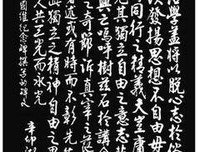 學蓋將以脫心志於俗
以發揚思想不自由毋
同行之精義夫豈庸
見其獨立自由之意志
嗚呼樹茲石於講舍
之奇節訴真宰之茫
述或有時而不彰先生
此獨立之精神自由之思
共三光而永光 辛卯
國維紀念碑撰寫的碑文